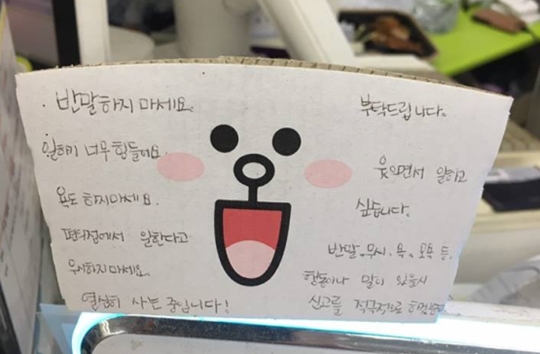 반말하지 마세요.
일하기 너무 힘들어요.
욕도 하지마세요.
편의점에서 일한다고
무시하지마세요.
열심히 사는 중입니다!
부탁드립니다.
웃으면서 일하고
싶습니다.
반말, 무시, 욕, 모욕 등
행동이나 말이 있을시
신고를 적극적으로